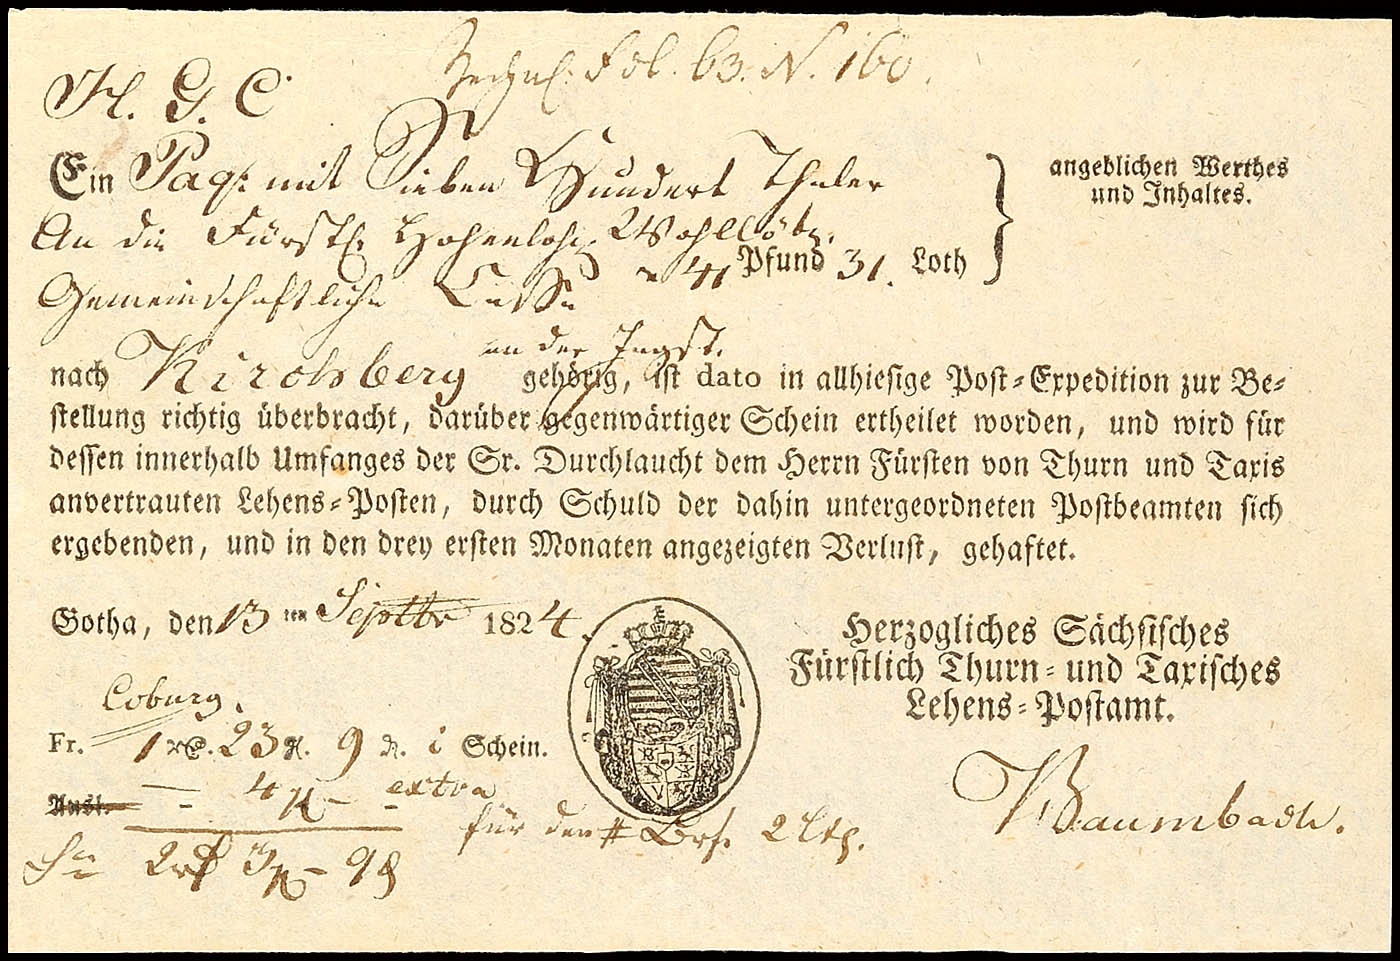 Fol. 63. N. 160.
H. G. C
Ein Paq: mit Sieben Hundert Thaler
angeblichen Werthes
und Inhaltes.
An die Fürstl. Hohenlohe Wohllöbl.
41 Pfund 31. Loth
Gemeinschaftliche Casse
an der Jagst.
nach Kirchberg gehörig, ist dato in allhiesige Post-Expedition zur Be-
stellung richtig überbracht, darüber gegenwärtiger Schein ertheilet worden, und wird für
dessen innerhalb Umfanges der Sr. Durchlaucht dem Herrn Fürsten von Thurn und Taxis
anvertrauten Lehens-Posten, durch Schuld der dahin untergeordneten Postbeamten sich
ergebenden, und in den drey ersten Monaten angezeigten Verlust, gehaftet.
Gotha, den 13 ten Septbr 1824.
Herzogliches Sächsisches
Fürstlich Thurn- und Taxisches
Lehens-Postamt.
Coburg.
Fr. 1 23 9 Schein.
Ausl. - 4 - extra
für den 2
2 3 - 9
Baumbach.